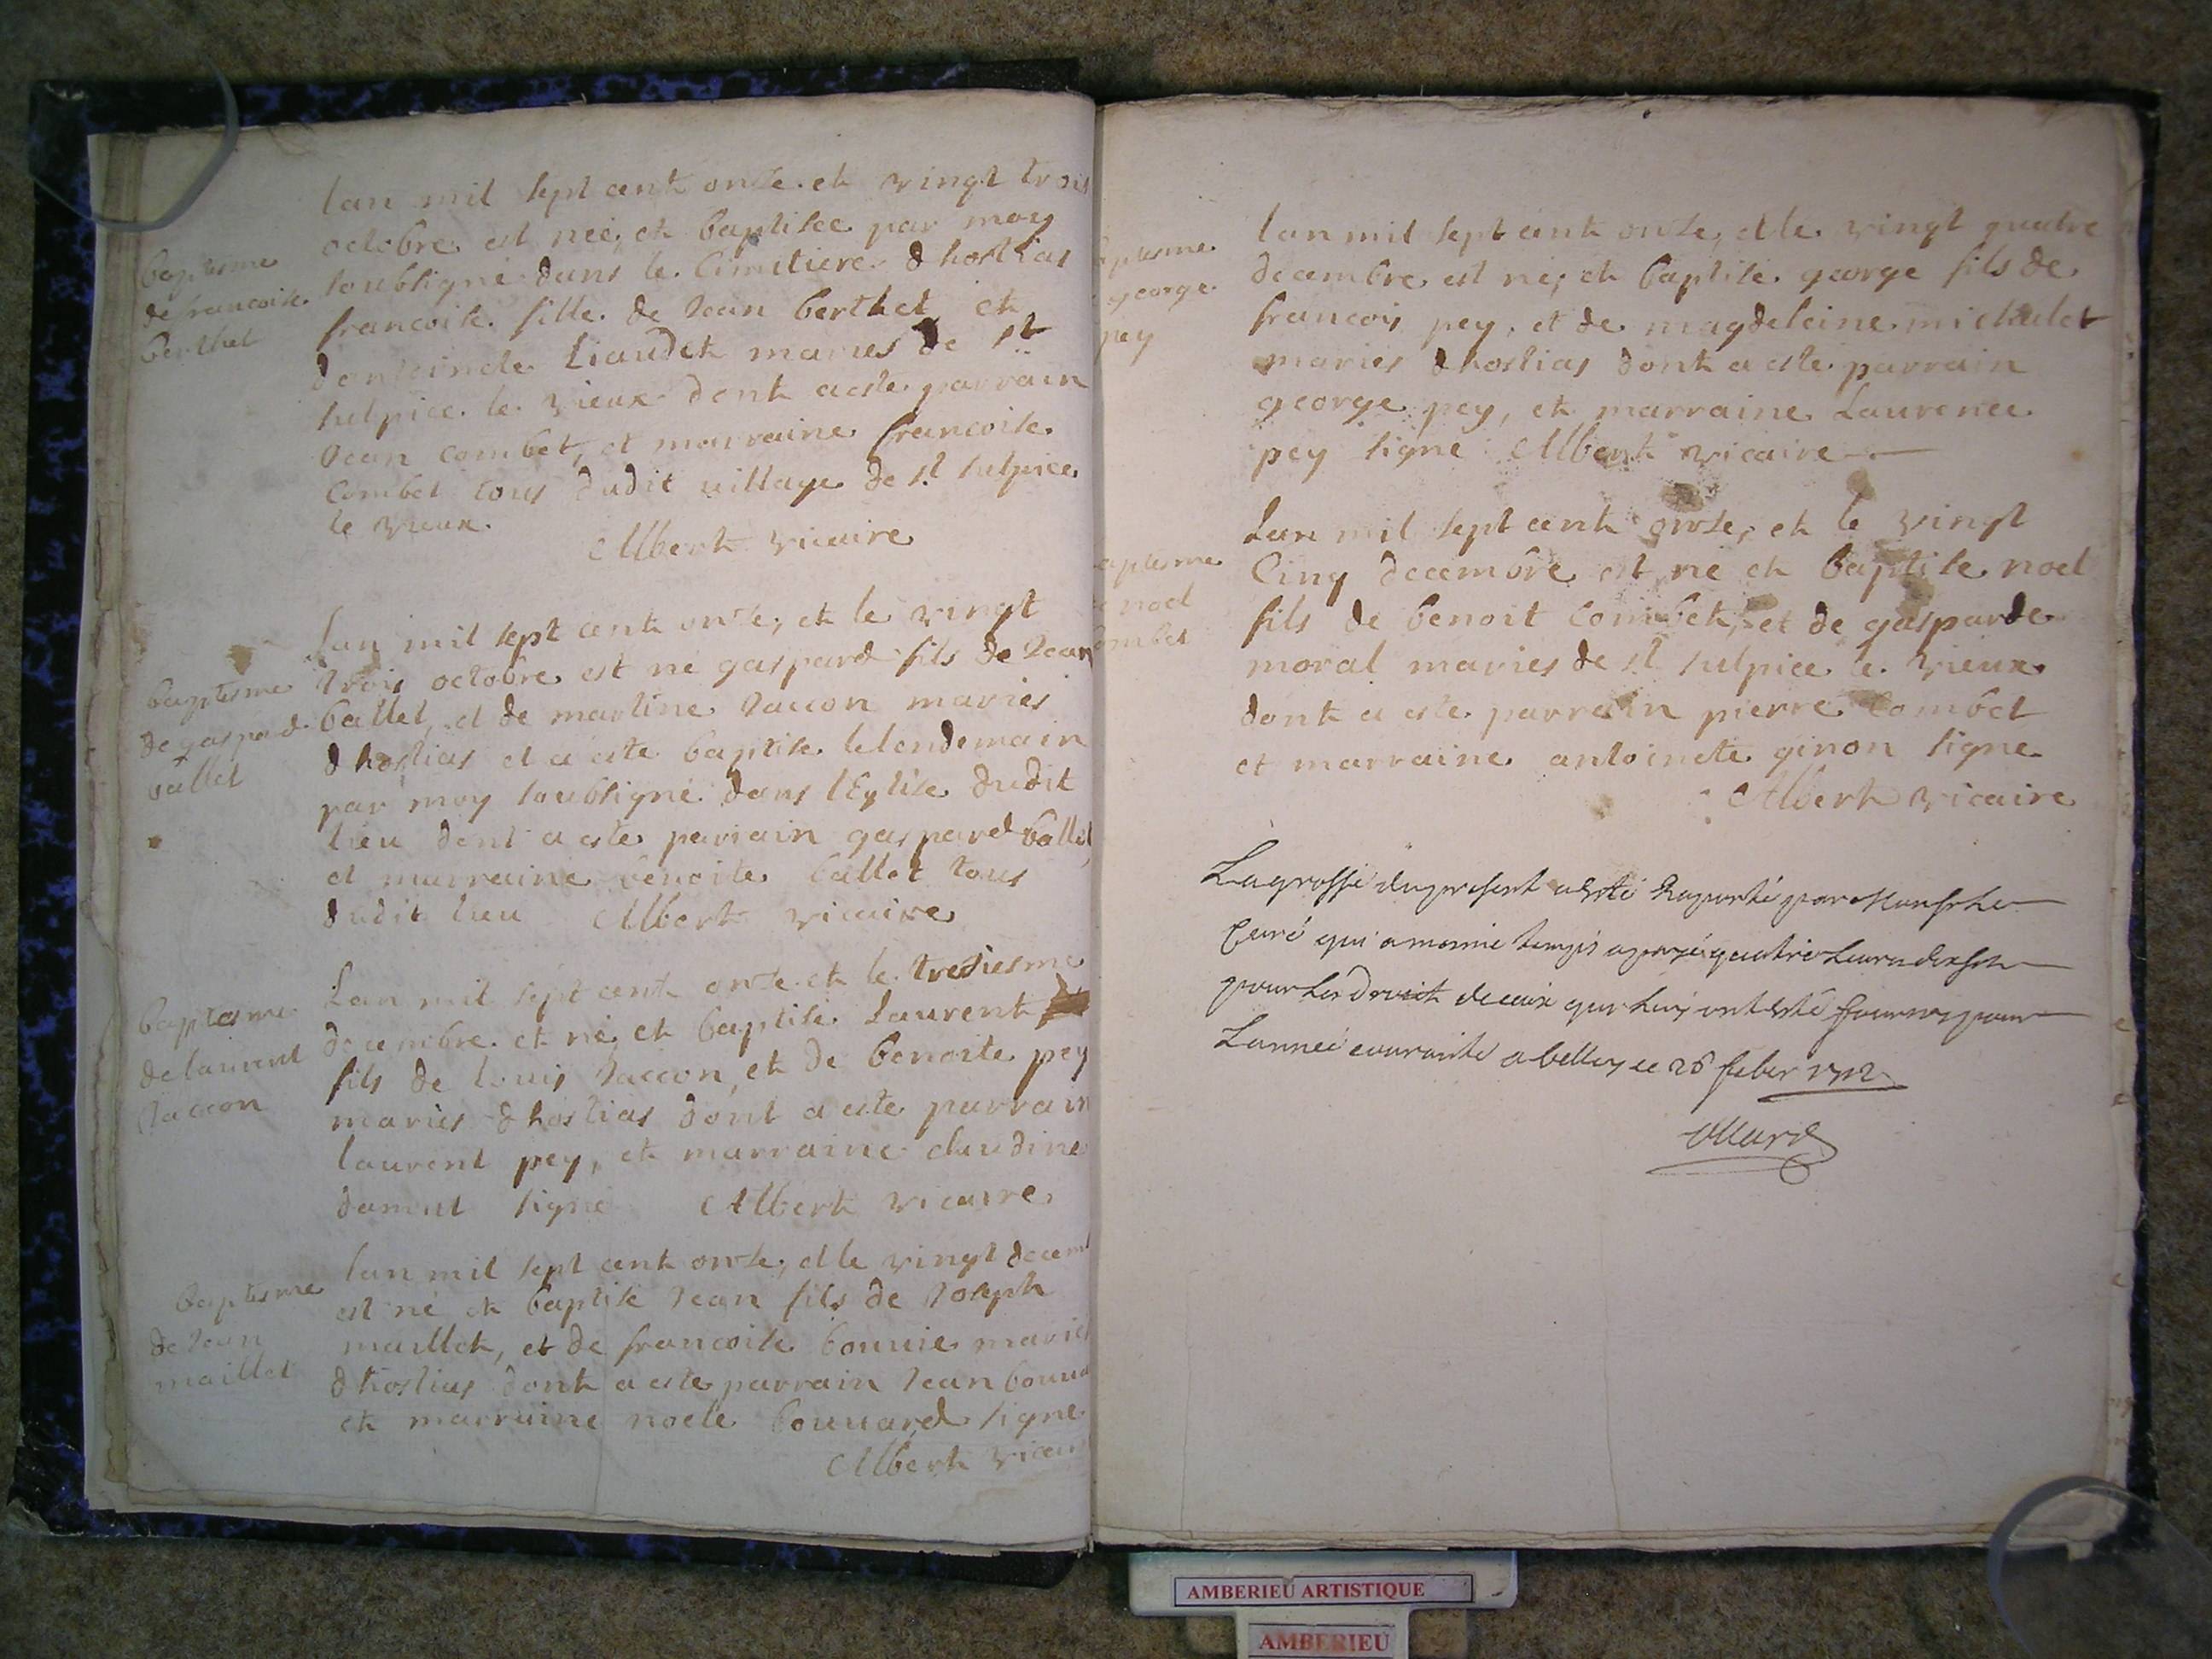 baptesme
de francoise
berthet
lan mil sept cent onze et vingt trois
octobre est neé, et baptisee par moy
soubsigné dans le Cimitiere d hostias
francoise fille de Jean berthet et
dantoinete Liaudet maries de st
sulpice le vieux dont a este parrain
Jean combet, et marraine francoise
Combet tous dudit village de st sulpice
le vieux.
Albert vicaire
baptesme
de gaspard
ballet
Lan mil sept cent onze, et le vingt
trois octobre est né gaspard fils de Jean
ballet, et de martine Jaccon mariés
d hostias et a este baptise le lendemain
par moy soubsigné dans lEglise dudit
lieu dont a este parrain gaspard ballet
et marraine benoite ballet tous
dudit lieu Albert vicaire
baptesme
de laurent
Jaccon
Lan mil sept cent onze et le tresiesme
decembre et né, et baptise Laurent
fils de Louis Jaccon, et de benoite pey
mariés d hostias dont a este parrain
laurent pey, et marraine claudine
signé Albert vicaire
baptesme
de Jean
maillet
lan mil sept cent onze, et le vingt decem
est né et baptise Jean fils de Joseph
maillet, et de francoise bouvie maries
d hostias dont a este parrain Jean
et marraine noele bouuard signe
Albert vicai
ptesme
george
pey
lan mil sept cent onze, et le vingt quatre
decembre est né, et baptise george fils de
francois pey, et de magdeleine michalet
maries d hostias dont a este parrain
george pey, et marraine Laurence
pey signé Albert vicaire
aptesme
e noel
ombet
Lan mil sept cent onze, et le vingt
Cinq decembre est né et baptise noel
fils de benoit Combet, et de gasparde
moral maries de st sulpice le vieux
dont a este parrain pierre Combet
et marraine antoinete ginon signe
Albert vicaire
La grosse du present a esté Raporté par
Curé qui a mesme temps a payé quatre
pour les droits de ceux qui luy ont esté fournis pour
Lannée courante a belley ce 26 feber 1712
AMBERIEU ARTISTIQUE
AMBERIEU